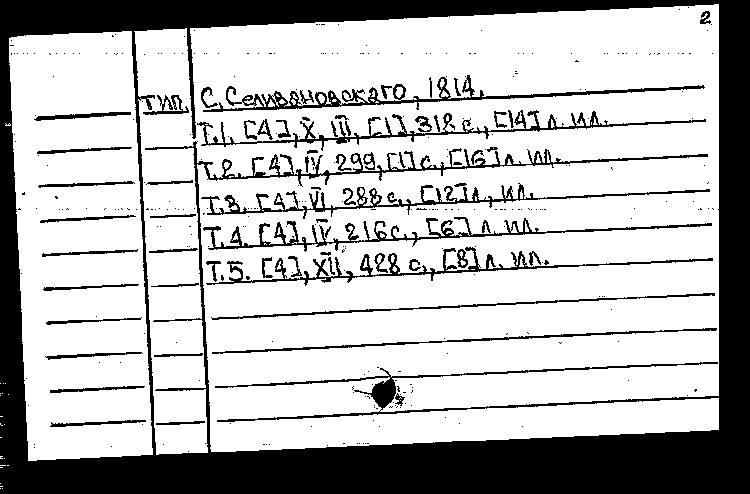 2
тип. С. Селивановскаго, 1814.
Т.1. [4], X, III, [1], 318 с., [14] л. ил.
Т.2. [4], IV, 299, [1] с., [16] л. ил.
Т.3. [4], VI, 288 с., [12] л., ил.
Т.4. [4], IV, 216 с., [6] л. ил.
Т.5. [4], XII, 428 с., [8] л. ил.